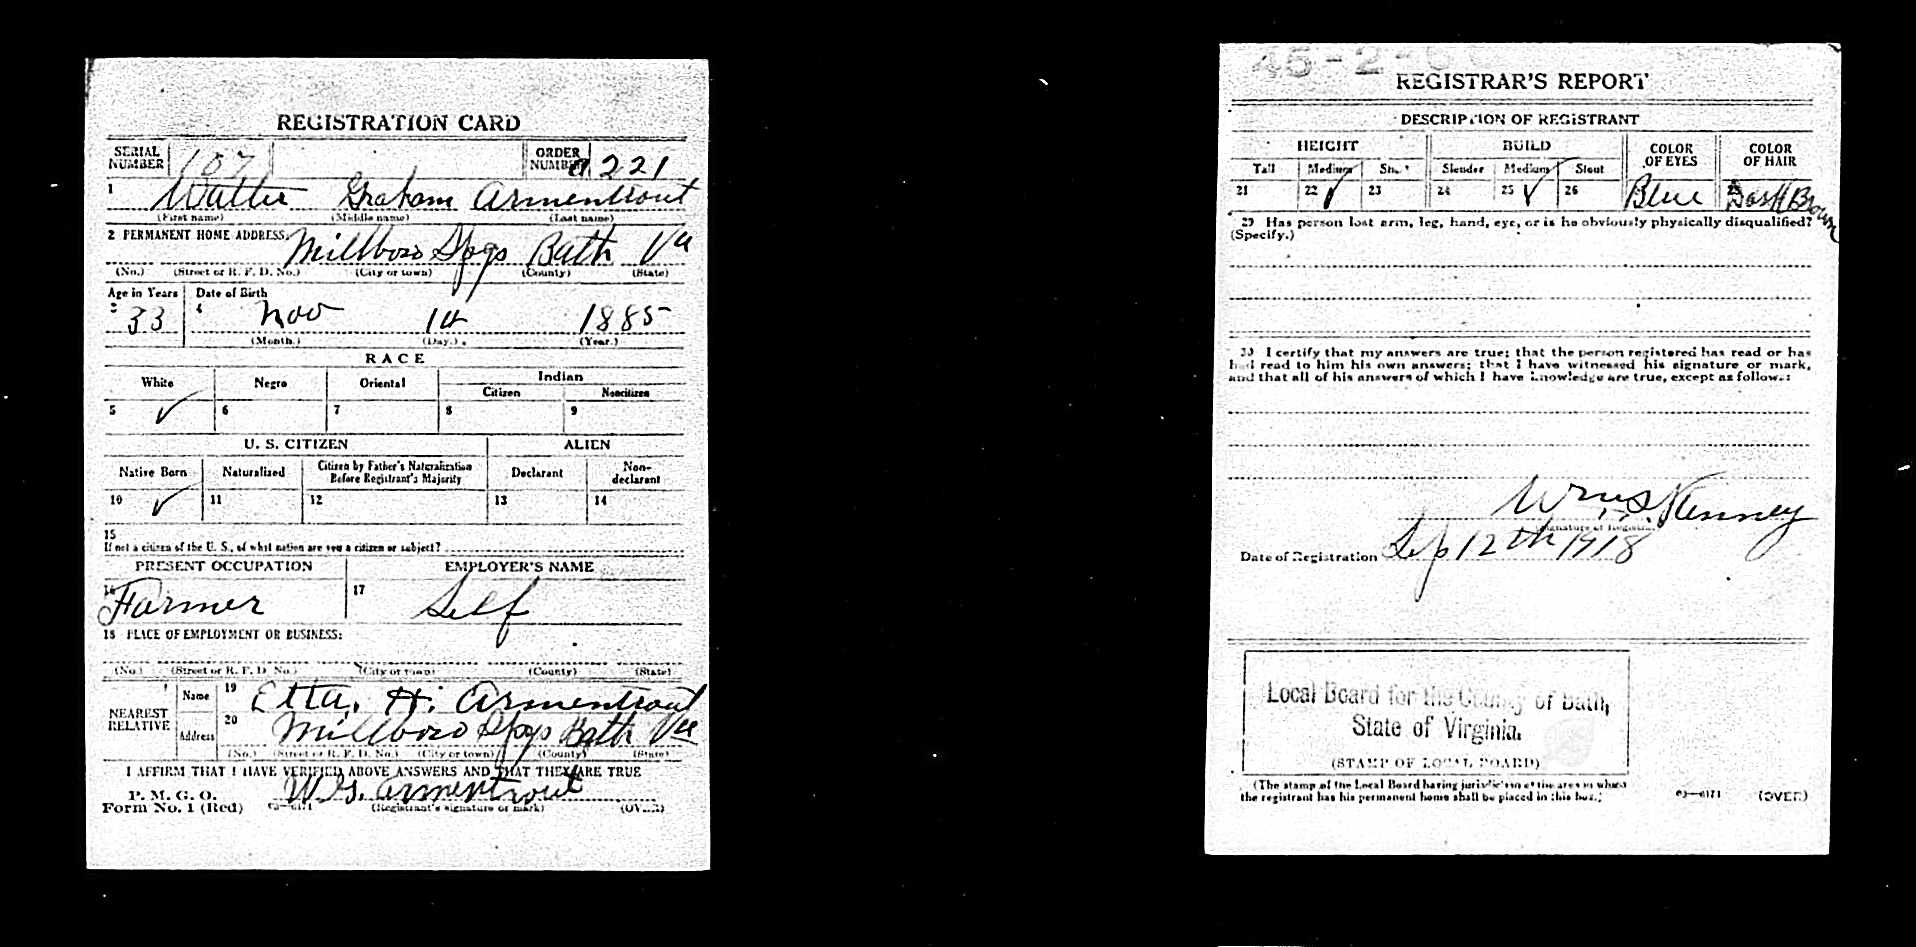 REGISTRATION CARD
SERIAL NUMBER 107 ORDER NUMBER A 221
1 Walter Graham Armentrout
(First name) (Middle name) (Last name)
2 PERMANENT HOME ADDRESS: Millboro Spgs Bath Va
(No.) (Street or R. F. D. No.) (City or town) (County) (State)
Age in Years Date of Birth
3 33 4 Nov 10 1885
(Month.) (Day.) (Year.)
RACE
White Negro Oriental Indian
Citizen Noncitizen
5 ✓ 6 7 8 9
U. S. CITIZEN ALIEN
Native Born Naturalized Citizen by Father's Naturalization Before Registrant's Majority Declarant Non-declarant
10 ✓ 11 12 13 14
15
If not a citizen of the U. S., of what nation are you a citizen or subject?
PRESENT OCCUPATION EMPLOYER'S NAME
16 Farmer 17 Self
18 PLACE OF EMPLOYMENT OR BUSINESS:
(No.) (Street or R. F. D. No.) (City or town) (County) (State)
NEAREST RELATIVE Name 19 Etta. H. Armentrout
Address 20 Millboro Spgs Bath Va
(No.) (Street or R. F. D. No.) (City or town) (County) (State)
I AFFIRM THAT I HAVE VERIFIED ABOVE ANSWERS AND THAT THEY ARE TRUE
P. M. G. O.
Form No. 1 (Red) W. G. Armentrout
(Registrant's signature or mark) (OVER)
45-2-
REGISTRAR'S REPORT
DESCRIPTION OF REGISTRANT
HEIGHT BUILD COLOR OF EYES COLOR OF HAIR
Tall Medium Short Slender Medium Stout
21 22 ✓ 23 24 25 ✓ 26 Blue Dark Brown
29 Has person lost arm, leg, hand, eye, or is he obviously physically disqualified?
(Specify.)
30 I certify that my answers are true; that the person registered has read or has
had read to him his own answers; that I have witnessed his signature or mark,
and that all of his answers of which I have knowledge are true, except as follows:
Wm S. Kenney
(Signature of Registrar)
Date of Registration Sep 12th 1918
Local Board for the County of Bath,
State of Virginia.
(STAMP OF LOCAL BOARD)
(The stamp of the Local Board having jurisdiction of the area in which
the registrant has his permanent home shall be placed in this box.)
03—6171 (OVER)